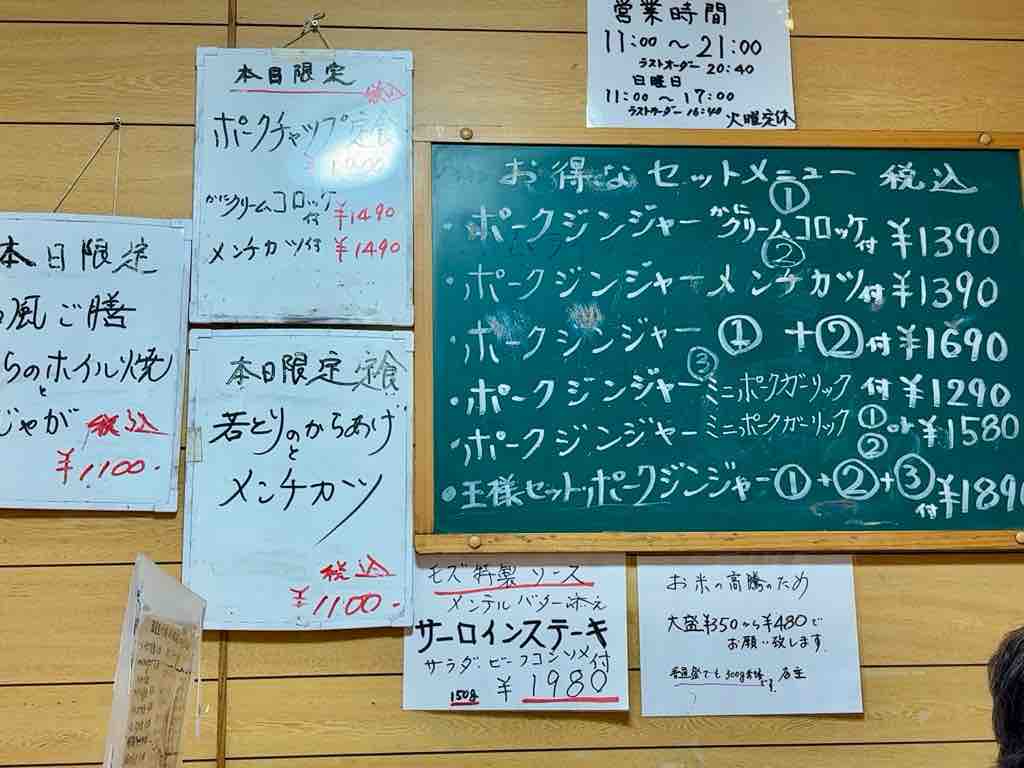 営業時間
11:00～21:00
ラストオーダー 20:40
日曜日
11:00～17:00
ラストオーダー 16:40
火曜定休
本日限定
税込
ポークチャップ定食
かにクリームコロッケ付 ¥1490
メンチカツ付 ¥1490
本日限定
風ご膳
らのホイル焼
と
じゃが 税込
¥1100-
本日限定 定食
若とりのからあげ
と
メンチカツ
税込
¥1100-
お得なセットメニュー 税込
①
・ポークジンジャー かにクリームコロッケ付 ¥1390
②
・ポークジンジャー メンチカツ付 ¥1390
・ポークジンジャー ①+②付 ¥1690
③
・ポークジンジャー ミニポークガーリック付 ¥1290
・ポークジンジャー ミニポークガーリック ①or② ¥1580
・王様セット、ポークジンジャー ①+②+③付 ¥1890
モズ特製ソース
メンテルバター添え
サーロインステーキ
サラダ・ビーフコンソメ付
150g ¥1980
お米の高騰のため
大盛¥350から¥480で
お願い致します
店主